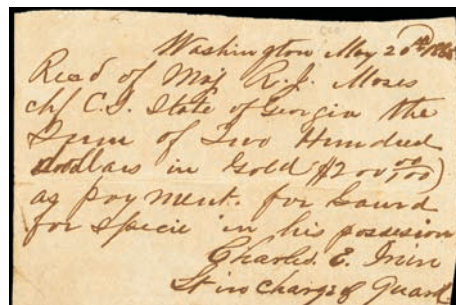 Washington May 20th 1865
Recd of Maj R. J. Moses
chf C.S. State of Georgia the
Sum of Two Hundred
dollars in Gold ($200 00/00)
as payment for Gaurd
for Specie in his possesion
Charles. E. Irvin
Lt in charge of Guard